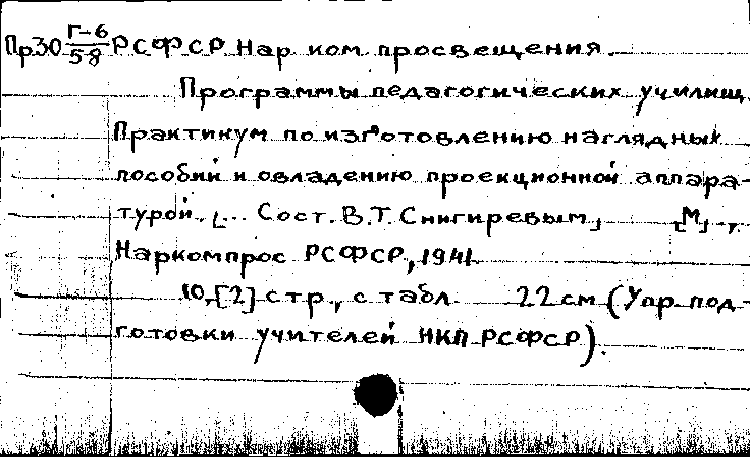 Пр30 Г-6/58 РСФСР. Нар. ком. просвещения.
Программы педагогических училищ.
Практикум по изготовлению наглядных
пособий и овладению проекционной аппара-
турой. [... Сост. В.Т. Снигиревым] [М],
Наркомпрос РСФСР, 1941.
10,[2] стр., с табл. 22 см (Упр. под-
готовки учителей НКП РСФСР).